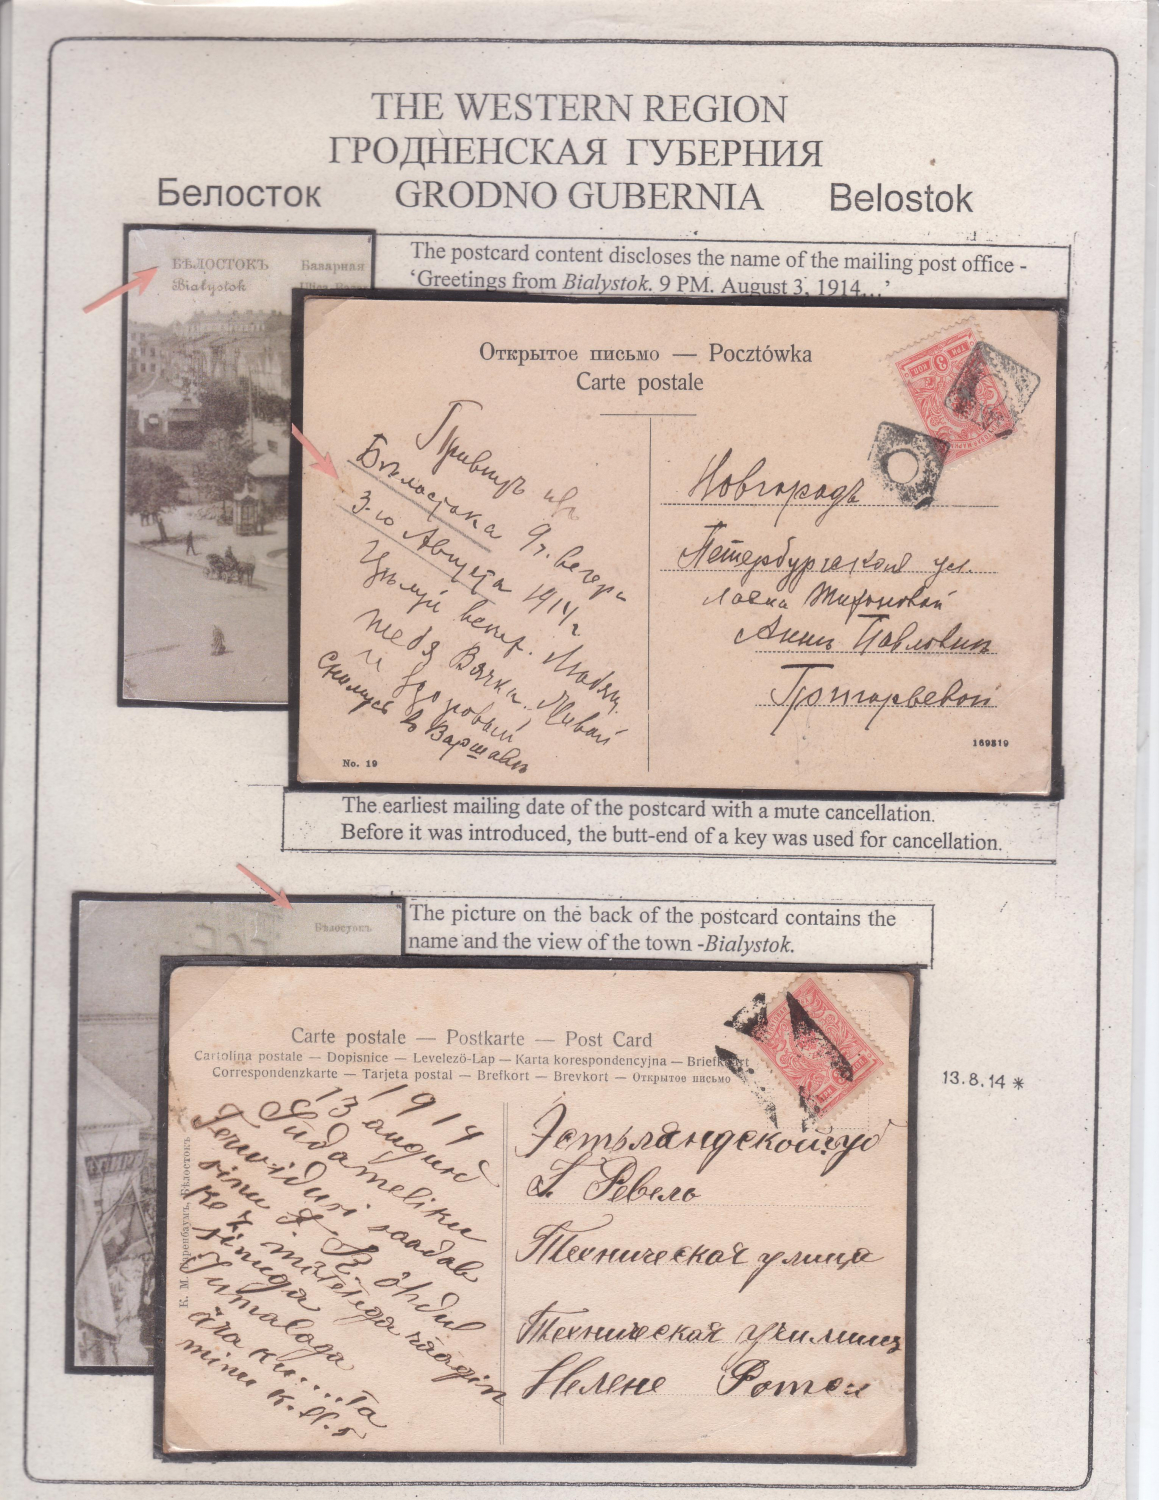 THE WESTERN REGION
ГРОДНЕНСКАЯ ГУБЕРНИЯ
Белосток GRODNO GUBERNIA Belostok
БѢЛОСТОКЪ Базарная
Białystok
The postcard content discloses the name of the mailing post office -
‘Greetings from Bialystok. 9 PM. August 3, 1914...’
Открытое письмо — Pocztówka
Carte postale
Привѣтъ изъ
Бѣлостока 9 ч. вечера
3-го Августа 1914 г.
Цѣлую
тебя Вячка. Живой
и здоровый
Снимусь въ Варшавѣ
No. 19
Новгородъ
Петербургская ул.
лавка
Аннѣ Павловнѣ
Григорьевой
169819
The earliest mailing date of the postcard with a mute cancellation.
Before it was introduced, the butt-end of a key was used for cancellation.
Бѣлостокъ
The picture on the back of the postcard contains the
name and the view of the town -Bialystok.
Carte postale — Postkarte — Post Card
Cartolina postale — Dopisnice — Levelező-Lap — Karta korespondencyjna — Briefkaart
Correspondenzkarte — Tarjeta postal — Brefkort — Brevkort — Открытое письмо
13.8.14 *
1914
13 august
Südameliku
Terwidusi saadab
sinu
mötetega räägin
sinuga
Jumalaga
ära ku.... ta
minu K.
Бѣлостокъ
Эстляндской губ
Г. Ревель
Техническая улица
Техническая
Нелене Ротси